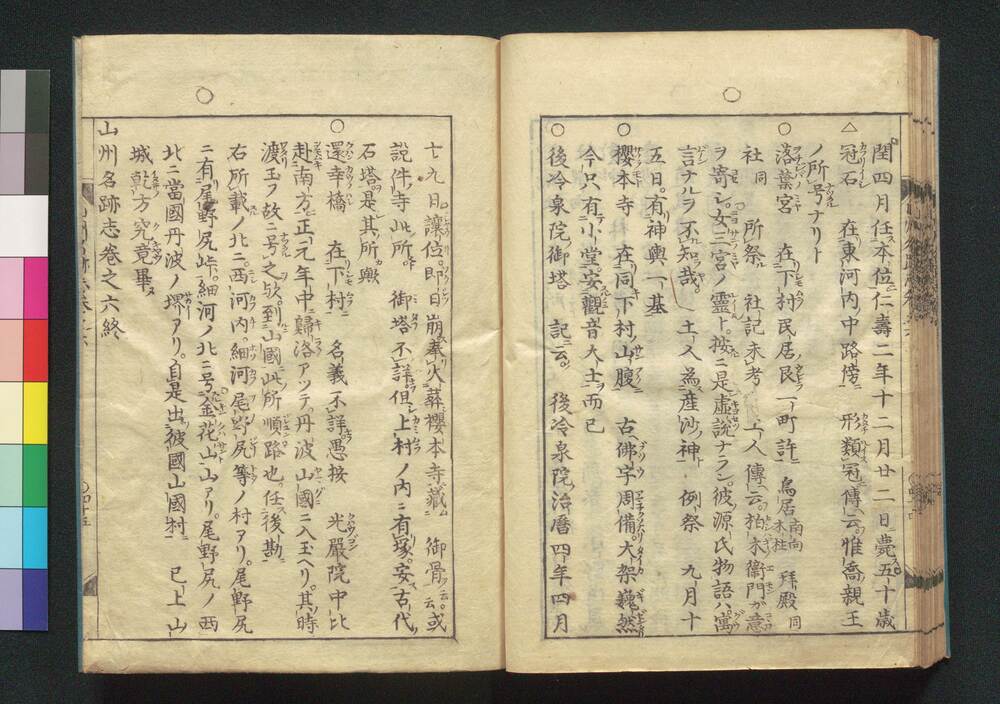 閏四月任本位仁壽二年十二月廿二日薨五十歳
△冠石　在東河内中路傍　形類冠傳云惟喬親王
ノ所号ナリト
○落葉宮　在下村民居艮一町許　鳥居南向木柱　拜殿同
社同　所祭　社記未考土人傳云柏木衞門ガ意
ヲ寄シ女三宮ノ靈ト按ニ是虚説ナラン彼源氏物語ハ寓
言ナルヲ不知哉　土人爲産沙神　例祭　九月十
五日有神輿一基
○櫻本寺　在同下村山腹　古佛宇周備大架巍然
今只有小堂安觀音大士而已
○後冷泉院御塔　記云　後冷泉院治暦四年四月
十九日讓位即日崩奉火葬櫻本寺藏　御骨云云或
説件寺此所　御塔不詳但上村ノ内ニ有塚安古代
石塔是其所歟
○還幸橋　在下村　名義不詳愚按　光嚴院中比
赴南方正元年中歸洛アツテ丹波山國ニ入玉ヘリ其時
渡玉フ故ニ号之欤到山國此所順路也任後勘
右所載ノ北ニ西河内細河尾野尻等ノ村アリ尾野尻
ニ有尾野尻峠細河ノ北ニ号金花山山アリ尾野尻ノ西
北ニ當國丹波ノ堺アリ自是出彼國山國村　已上山
城乾方究竟畢
山州名跡志卷之六終